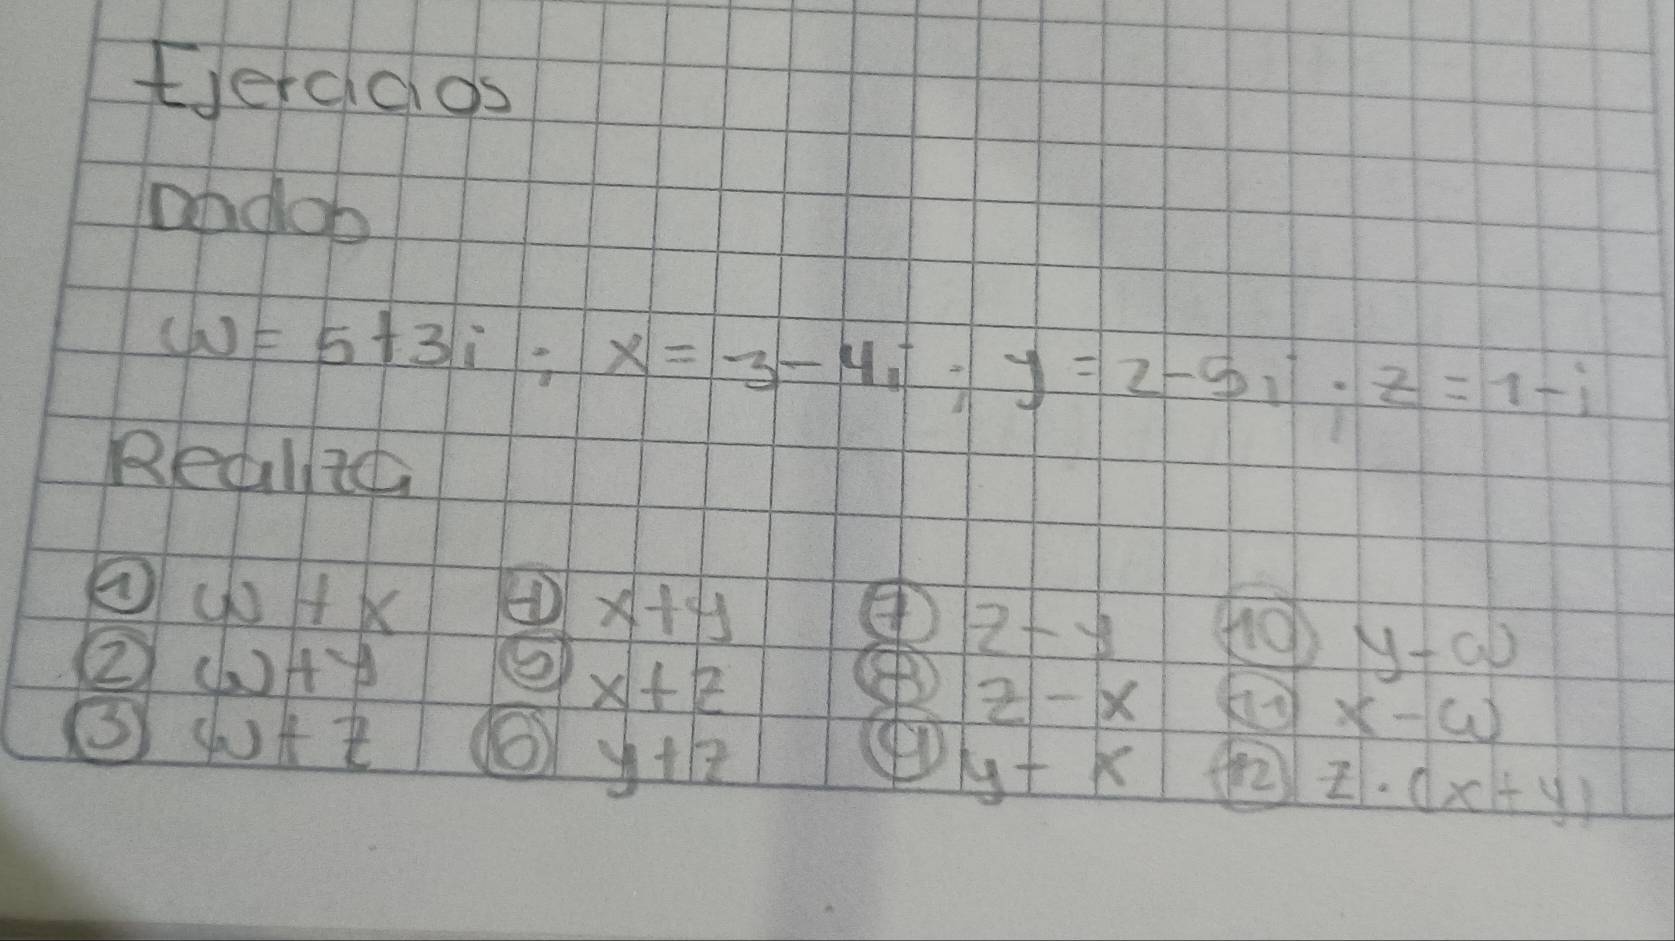 Ejercicios
Dados
w = 5+3i ; x = 3-4i ; y = 2-5i ; z = 1-i
Realiza
① w + x ④ x+y ⑦ z-y ⑩ y-w
② w+y ⑤ x+z ⑧ z-x ⑪ x-w
③ w+z ⑥ y+z ⑨ y-x ⑫ z·(x+y)